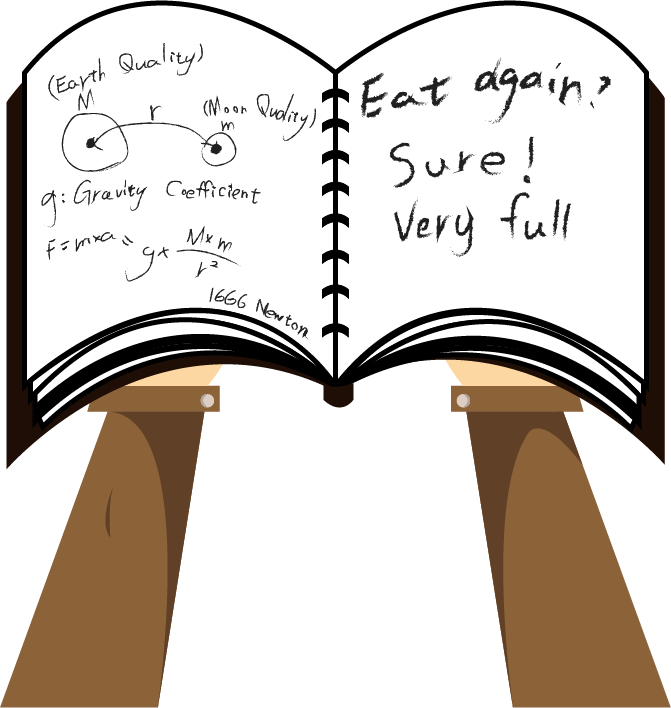 (Earth Quality)
M
r
(Moon Quality)
m
g: Gravity Coefficient
F=m×a=g× M×m
r²
1666 Newton
Eat again?
Sure!
Very full